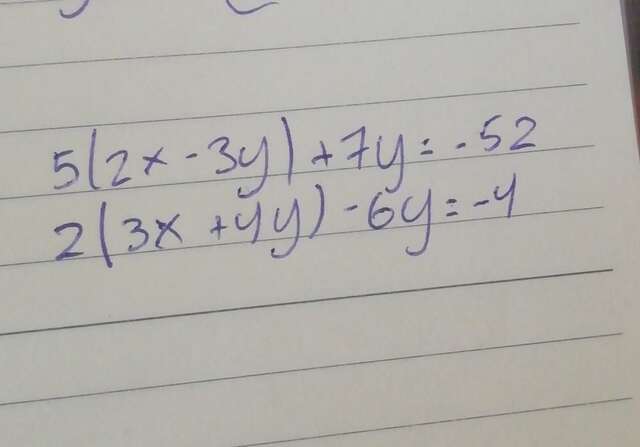 5(2x - 3y) + 7y = - 52
2(3x + 4y) - 6y = - 4